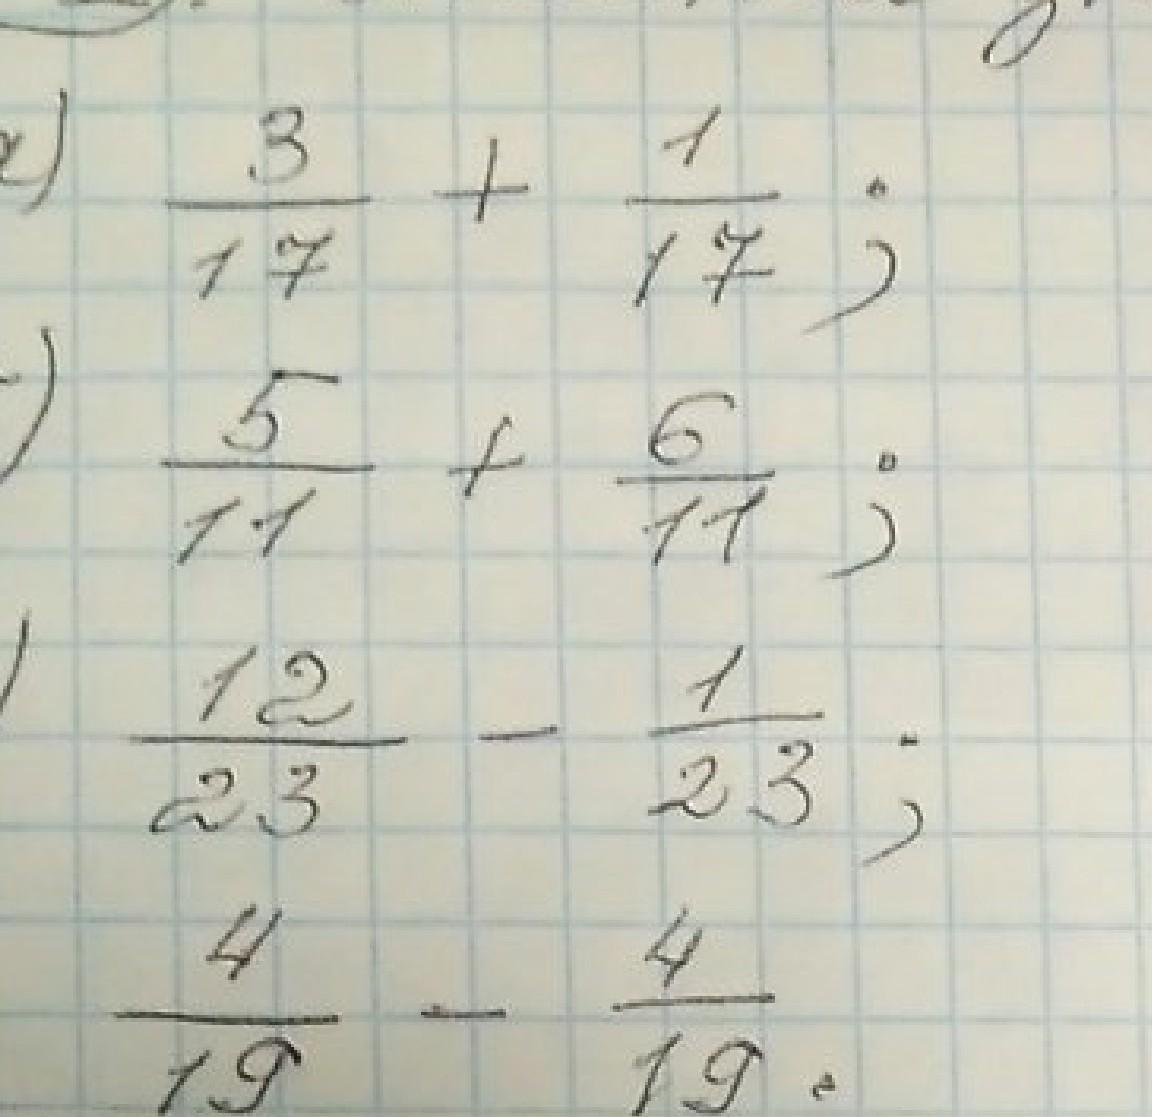 а) 3/17 + 1/17 ;
5/11 + 6/11 ;
12/23 - 1/23 ;
4/19 - 4/19 .